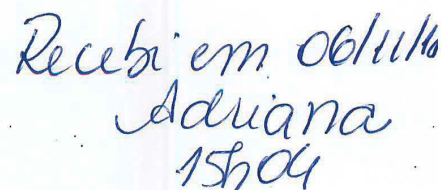 Recebi em 06/11/16
Adriana
15h04